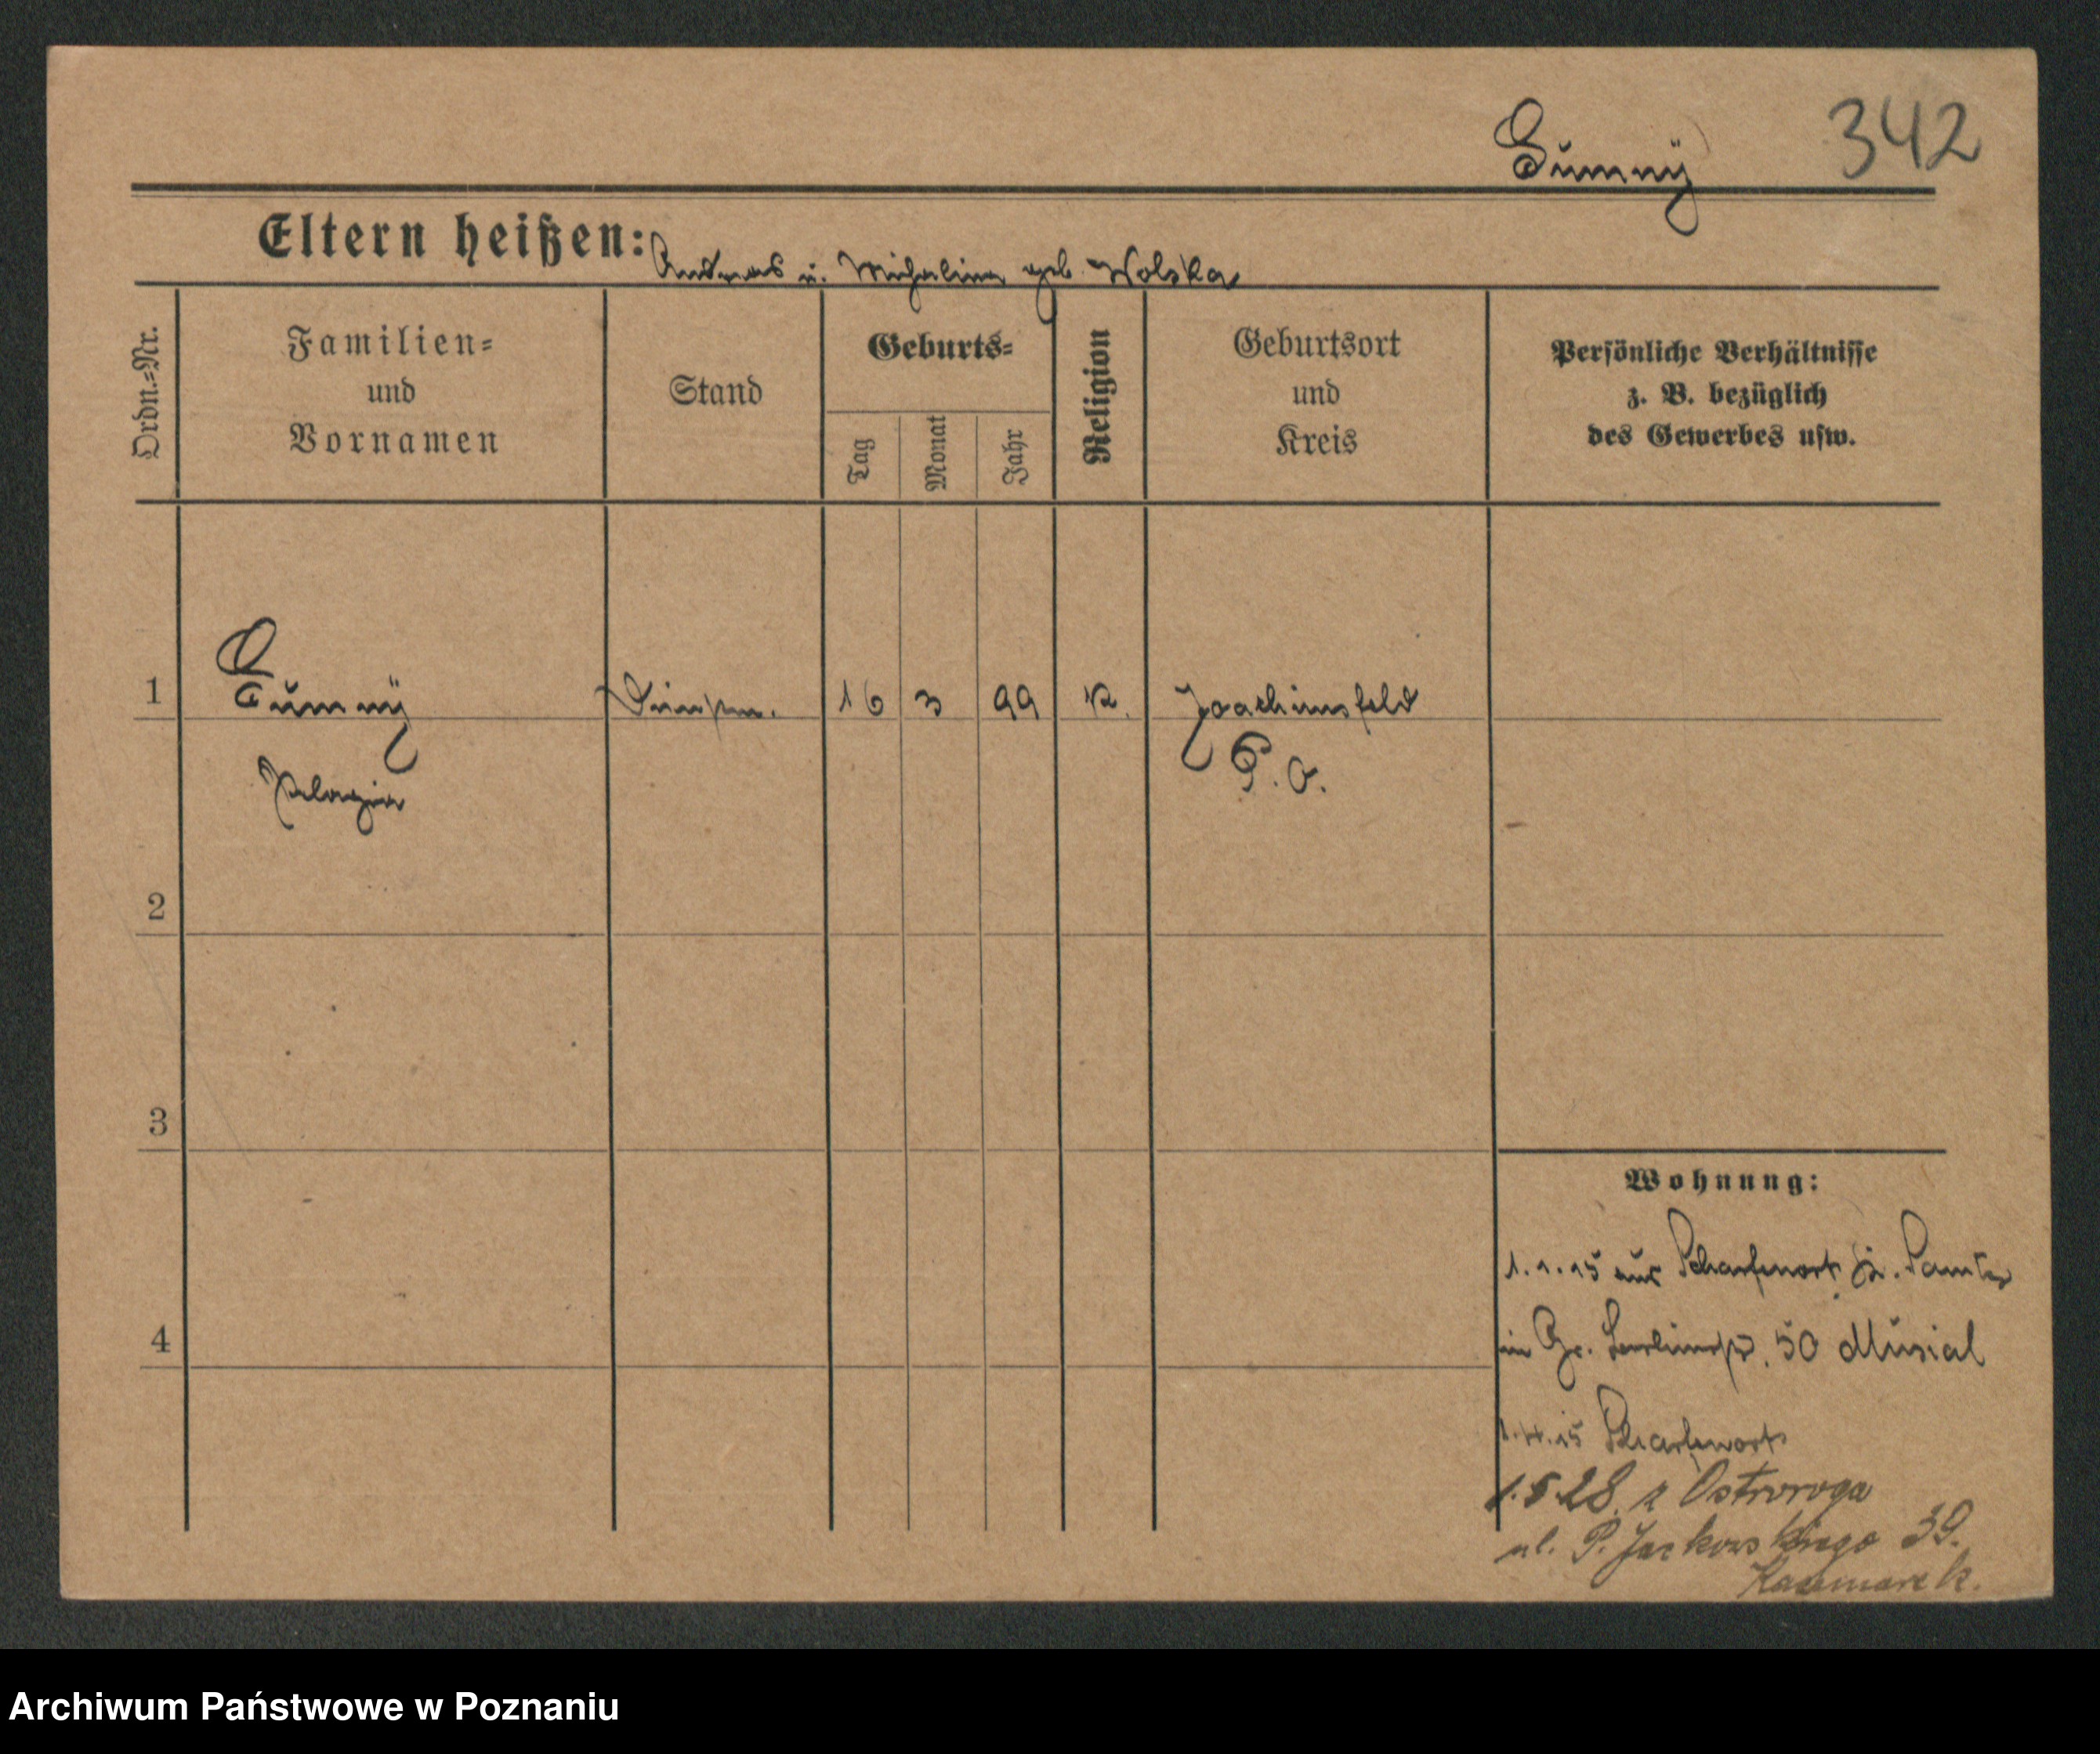 Dumny 342
Eltern heißen: Andreas u. Michalina geb. Wolska
Ordn.=Nr.
Familien=
und
Vornamen
Stand
Geburts=
Tag
Monat
Jahr
Religion
Geburtsort
und
Kreis
Persönliche Verhältnisse
z. B. bezüglich
des Gewerbes usw.
1 16 3 99 K. Joachimsfeld
Pelagia P. O.
2
3
Wohnung:
1.1.15 aus Scharfenort Kr. Samter
in Gr. 50 Musial
4
1.4.15 Scharfenort
1.5.28. z Ostroroga
ul. P. Jackowskiego 39.
Kaczmarek.
Archiwum Państwowe w Poznaniu